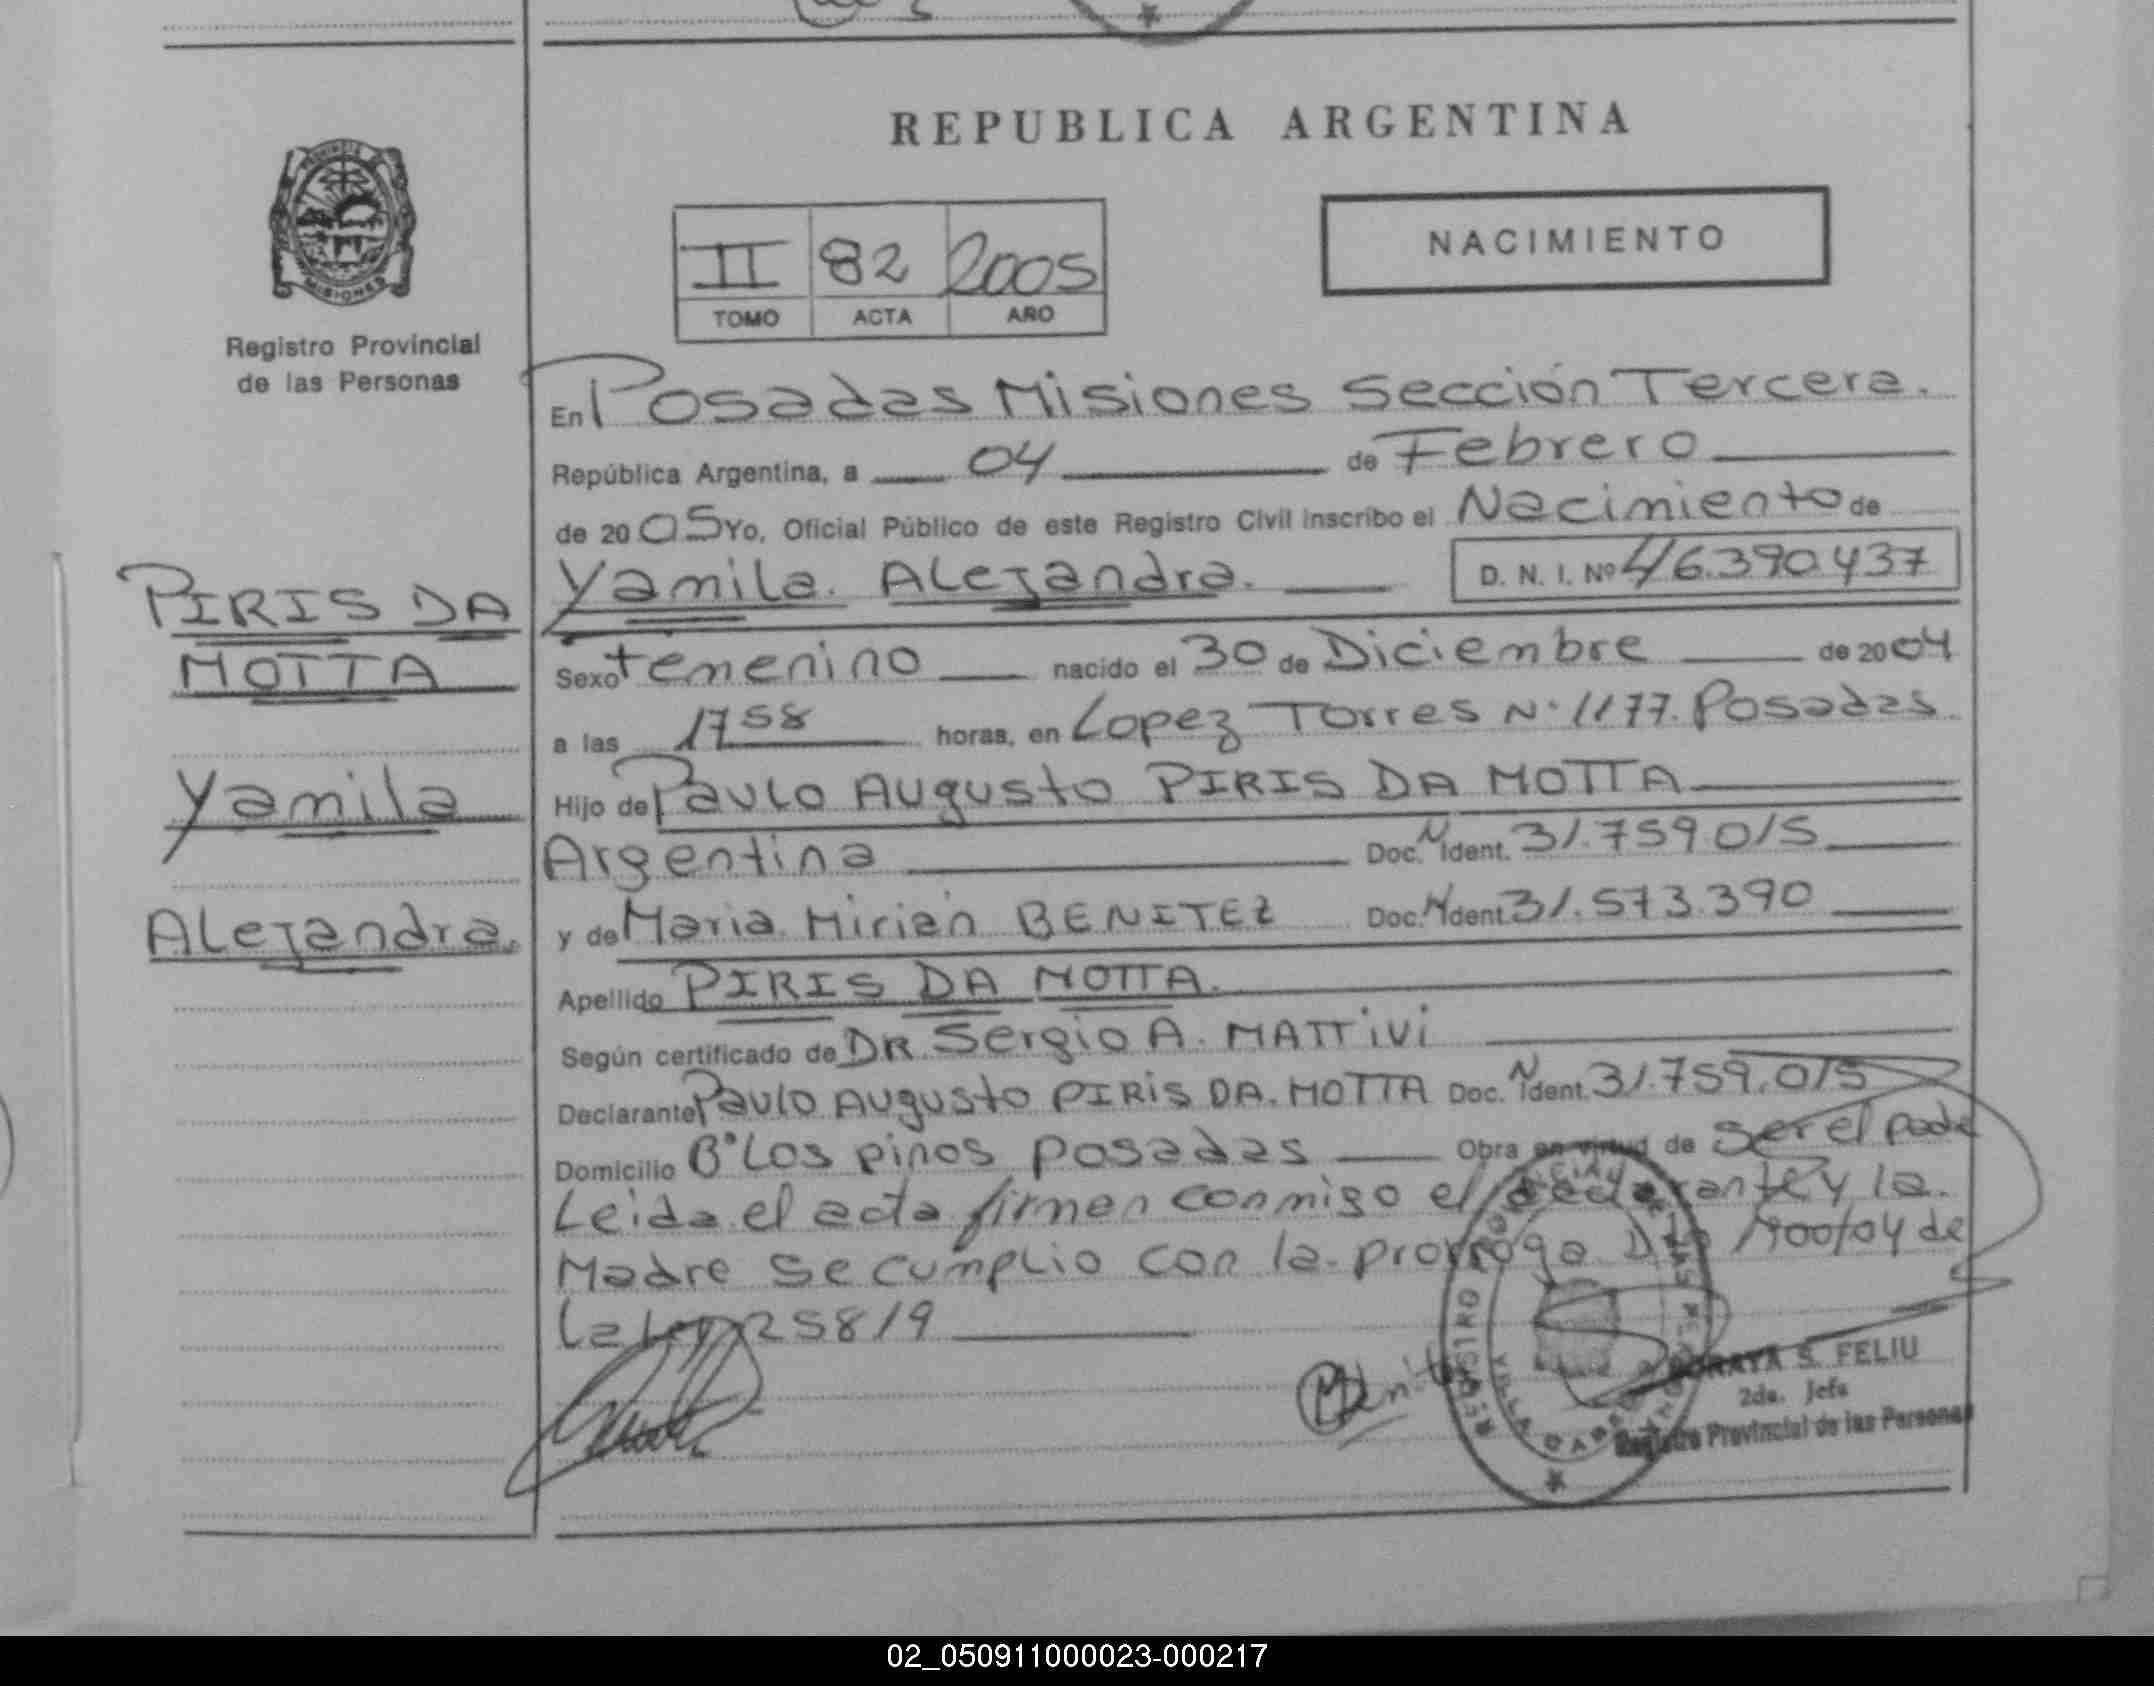 REPUBLICA ARGENTINA
PROVINCIA DE
MISIONES
Registro Provincial
de las Personas
II 82 2005
TOMO ACTA AÑO
NACIMIENTO
PIRIS DA
MOTTA
Yamila
Alejandra.
En Posadas Misiones Sección Tercera.
República Argentina, a 04 de Febrero
de 2005 Yo, Oficial Público de este Registro Civil inscribo el Nacimiento de
Yamila. Alejandra. D. N. I. Nº 46.390.437
Sexo femenino nacido el 30 de Diciembre de 2004
a las 17 58 horas, en Lopez Torres N° 1177. Posadas.
Hijo de Paulo Augusto PIRIS DA MOTTA
Argentina Doc. N Ident. 31.759.015
y de Maria Mirian BENITEZ Doc. N Ident. 31.573.390
Apellido PIRIS DA MOTTA.
Según certificado de DR Sergio A. MATTiVi
Declarante Paulo Augusto PIRIS DA. MOTTA Doc. N Ident. 31.759.015
Domicilio B° Los pinos posadas Obra en virtud de ser el padre
Leida el acta firman conmigo el declarante y la
Madre se cumplio con la prorroga Dto 1400/04 de
La Ley 25819
SORAYA S. FELIU
2da. Jefa
Registro Provincial de las Personas
02_050911000023-000217